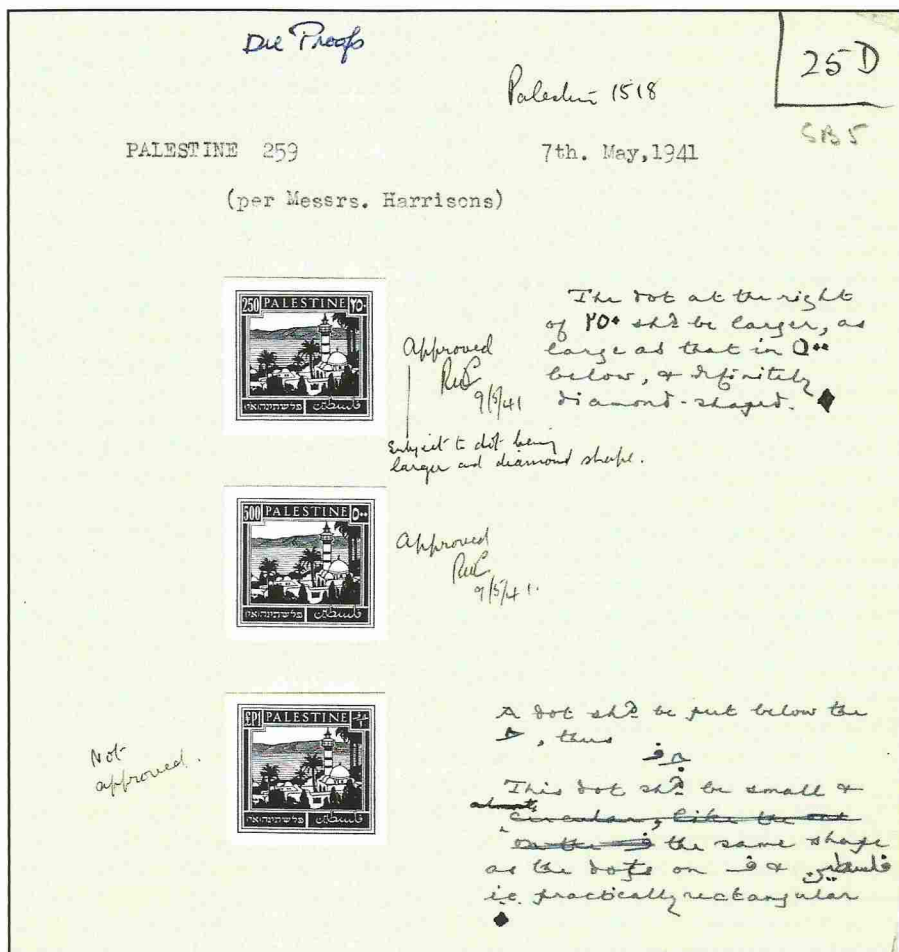 Die Proofs
25 D
Palestine 1518
SB5
PALESTINE 259
7th. May,1941
(per Messrs. Harrisons)
250 PALESTINE ٢٥٠
فلسطين פלשתינה א״י
Approved
9/5/41
Subject to dot being
larger and diamond shape.
The dot at the right
of ٢٥٠ shd be larger, as
large as that in ٥٠٠
below, & definitely
diamond-shaped.
500 PALESTINE ٥٠٠
فلسطين פלשתינה א״י
Approved
9/5/41.
£P1 PALESTINE
فلسطين פלשתינה א״י
Not
approved.
A dot shd be put below the
, thus
This dot shd be small &
almost circular, like the one
on the the same shape
as the dots on & فلسطين
i.e. practically rectangular